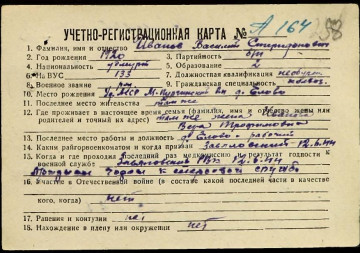 А 164
УЧЕТНО-РЕГИСТРАЦИОННАЯ КАРТА №
1. Фамилия, имя и отчество Иванов Василий Спиридонович
2. Год рождения 1920 3. Партийность б/п
4. Национальность удмурт 5. Образование 2
6. № ВУС 133 7. Должностная квалификация
8. Военное звание 9. Гражданская специальность
10. Место рождения
11. Последнее место жительства там же
12. Где проживает в настоящее время семья (фамилия, имя и отчество жены или
родителей и точный их адрес) там же жена Иванова
Вера
13. Последнее место работы и должность рабочий
14. Каким райгорвоенкоматом и когда призван 12.6.44
15. Когда и где проходил последний раз медкомиссию и результат годности к
военной службе РВК 12.6.44
годен к службе
16. Участие в Отечественной войне (в составе какой последней части и в качестве
кого, когда) нет
17. Ранения и контузии нет
18. Нахождение в плену или окружении нет